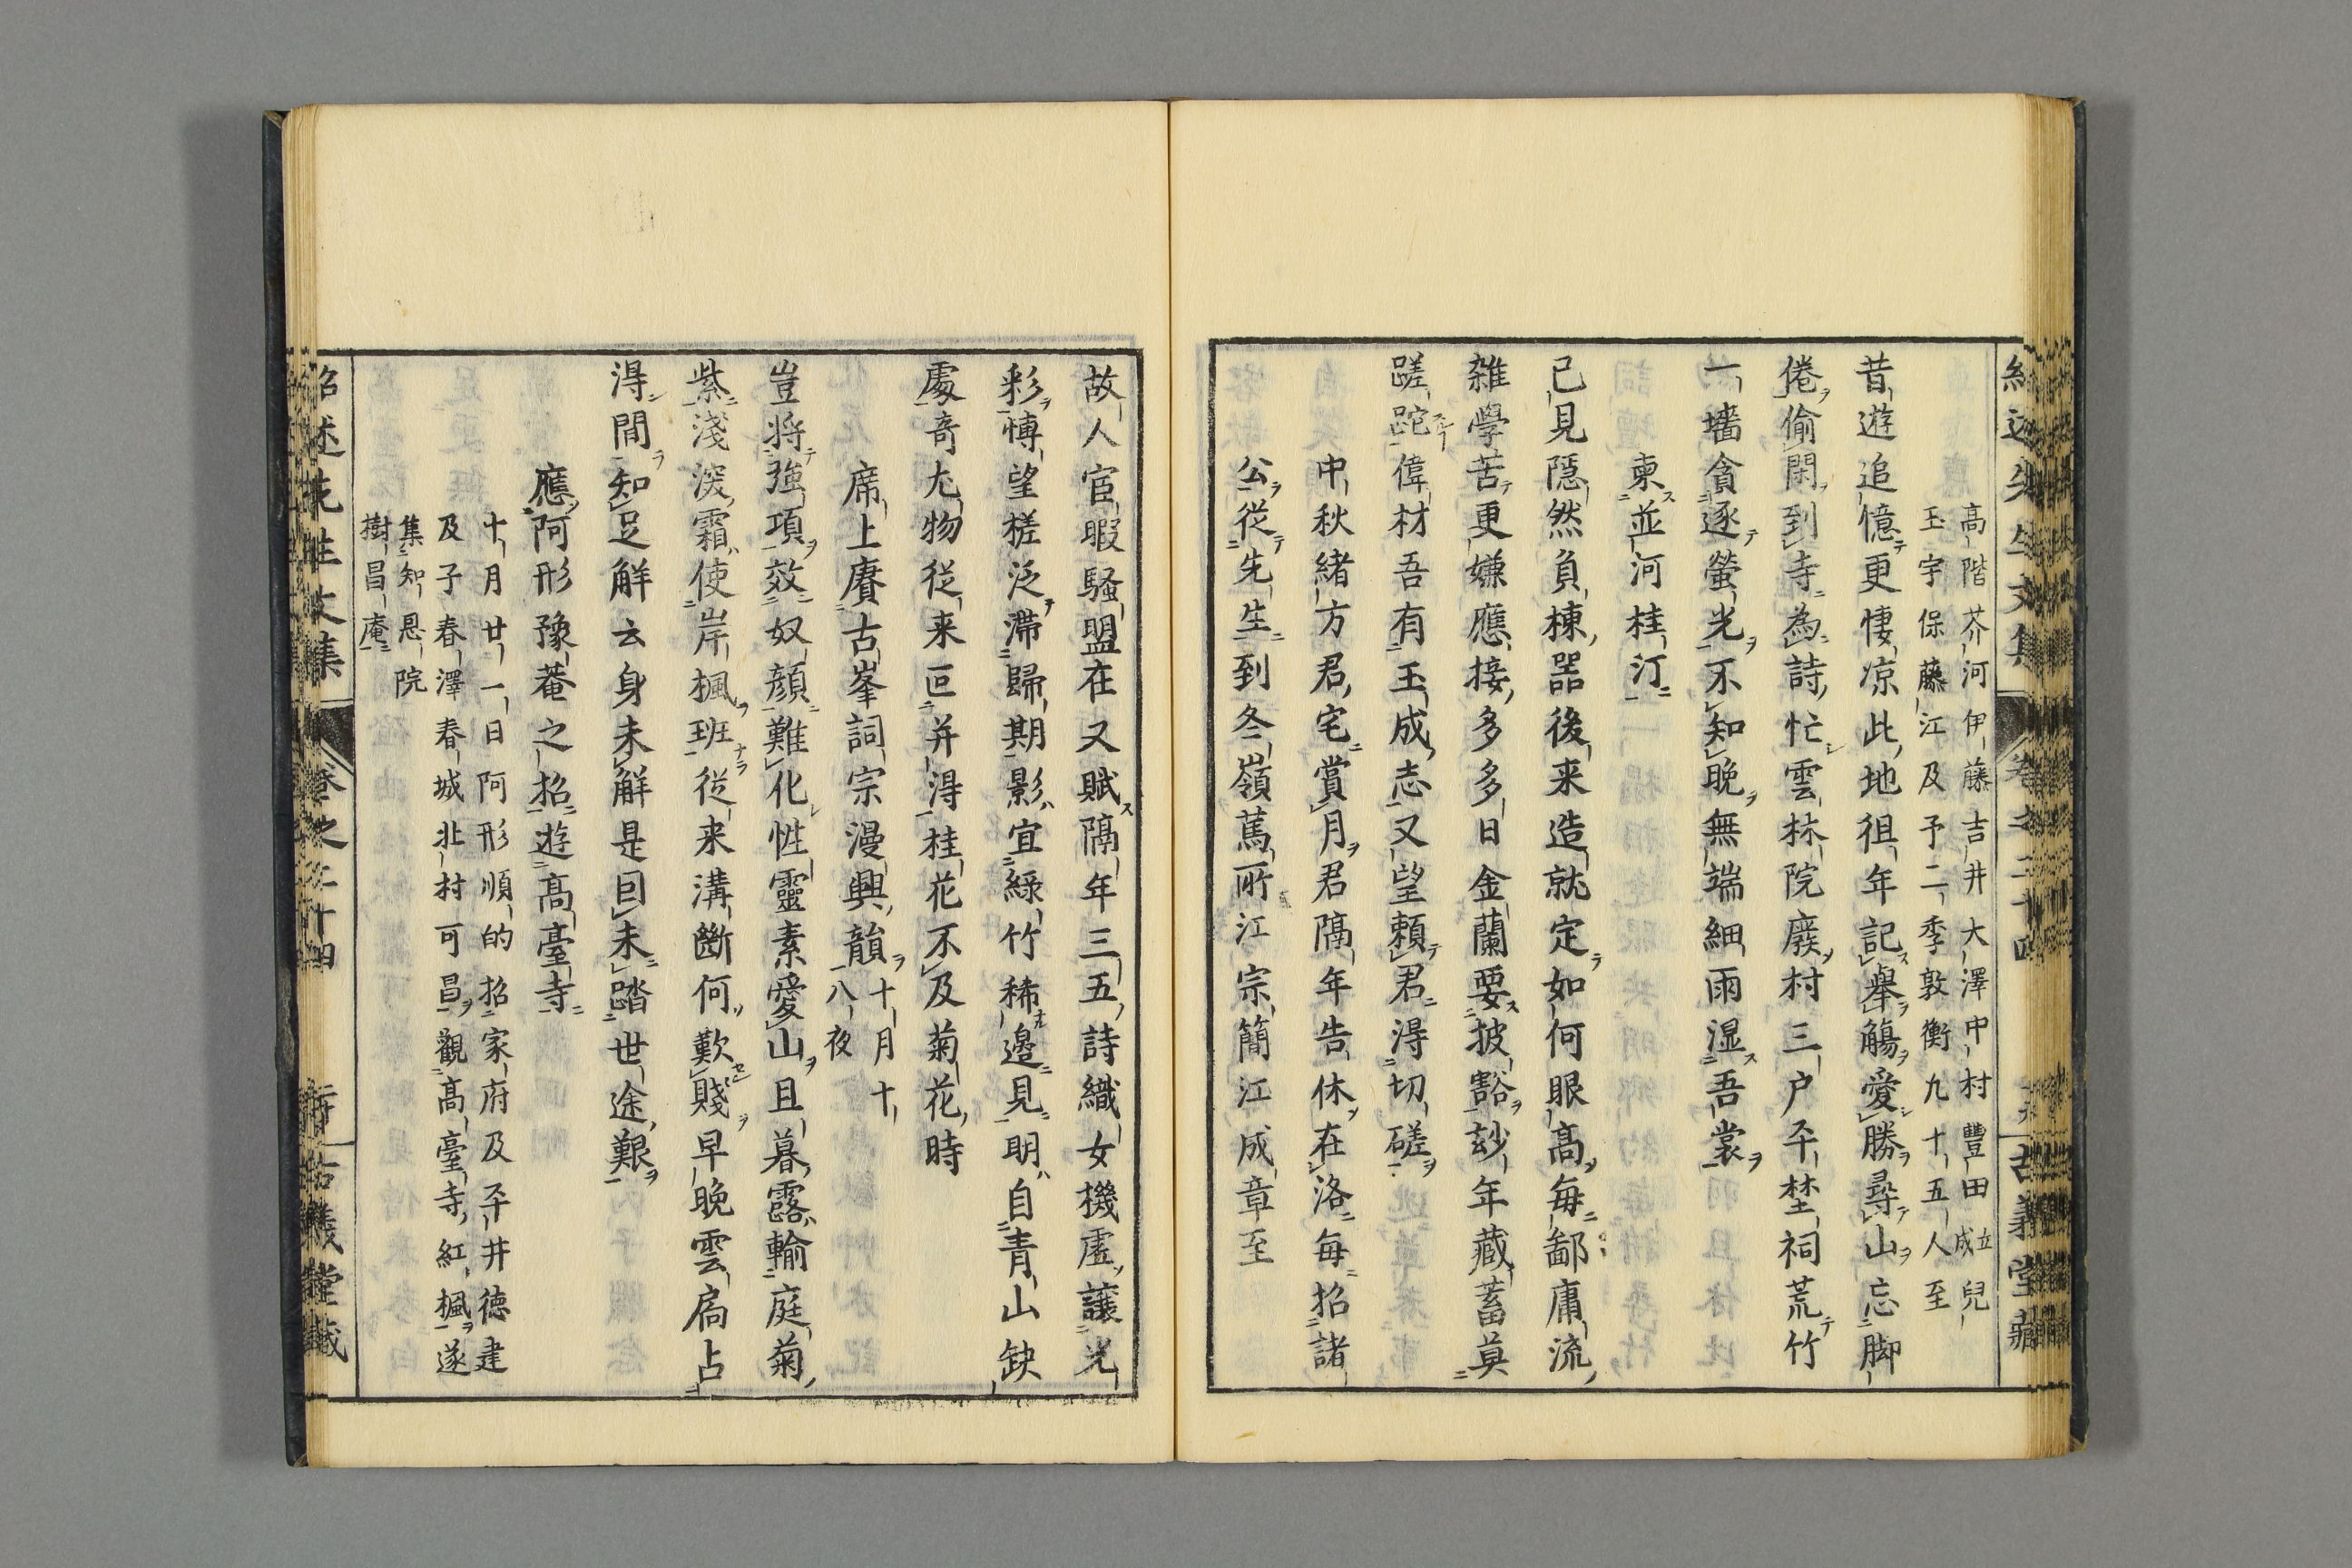 紹述先生文集 卷之二十四 古義堂藏
高階芥河伊藤吉井大澤中村豐田成立兒
玉宇保藤江及予二季敦衡九十五人至
昔遊追憶更悽凉此地徂年記舉觴愛勝尋山忘脚
倦偷閑到寺為詩忙雲林院廢村三户平埜祠荒竹
一墻貪逐螢光不知晚無端細雨湿吾裳
柬並河桂汀
已見隱然負棟器後来造就定如何眼高每鄙庸流
雜學苦更嫌應接多多日金蘭要披豁玅年藏蓄莫
蹉跎偉材吾有玉成志又望賴君得切磋
中秋緒方君宅賞月君隔年告休在洛每招諸
公從先生到冬嶺蔦所江宗簡江成章至
故人官暇騷盟在又賦隔年三五詩織女機虛讓光
彩愽望槎泛滯歸期影宜綠竹稀邊見明自青山缺
處奇尤物從来叵并得桂花不及菊花時
席上賡古峯詞宗漫興韻十月十八夜
豈将強項效奴顔難化性靈素愛山且暮露輸庭菊
紫淺深霜使岸楓班從来溝斷何歎賤早晚雲扃占
得間知足解云身未解是囙未踏世途艱
應阿形豫菴之招遊高臺寺
十月廿一日阿形順的招家府及平井德建
及子春澤春城北村可昌觀高臺寺紅楓遂
集知恩院
樹昌庵
紹述先生文集 卷之二十四 古義堂藏